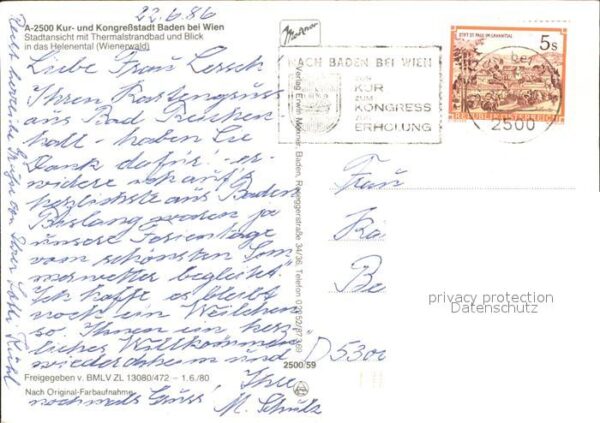 22.6.86
A-2500 Kur- und Kongreßstadt Baden bei Wien
Stadtansicht mit Thermalstrandbad und Blick
in das Helenental (Wienerwald)
Liebe Frau Lersch
Ihren Kartengruss
aus Bad Reichen
hall - haben Sie
Dank dafür! - er-
widere ich auf's
herzlichste aus Baden
Bislang waren ja
unsere Ferientage
vom schönsten Som
merwetter begleitet.
Ich hoffe es bleibt
noch ein Weilchen
so. Ihnen ein herz
liches Willkommen
wieder daheim und
Freigegeben v. BMLV ZL 13080/472 – 1./6./80
Nach Original-Farbaufnahme
nochmals Gruss! Ihre
M. Schulz
Recht herzliche Grüße von Ihrer Lotti Kühl
Verlag Erwin Mörner, Baden, Radetzkystraße 34/36, Telefon
2500/59
NACH BADEN BEI WIEN
ZUR
KUR
ZUM
KONGRESS
ZUR
ERHOLUNG
STIFT ST. PAUL IM LAVANTTAL
5 S
REPUBLIK ÖSTERREICH
2500
Frau
Be
D 5300
privacy protection
Datenschutz